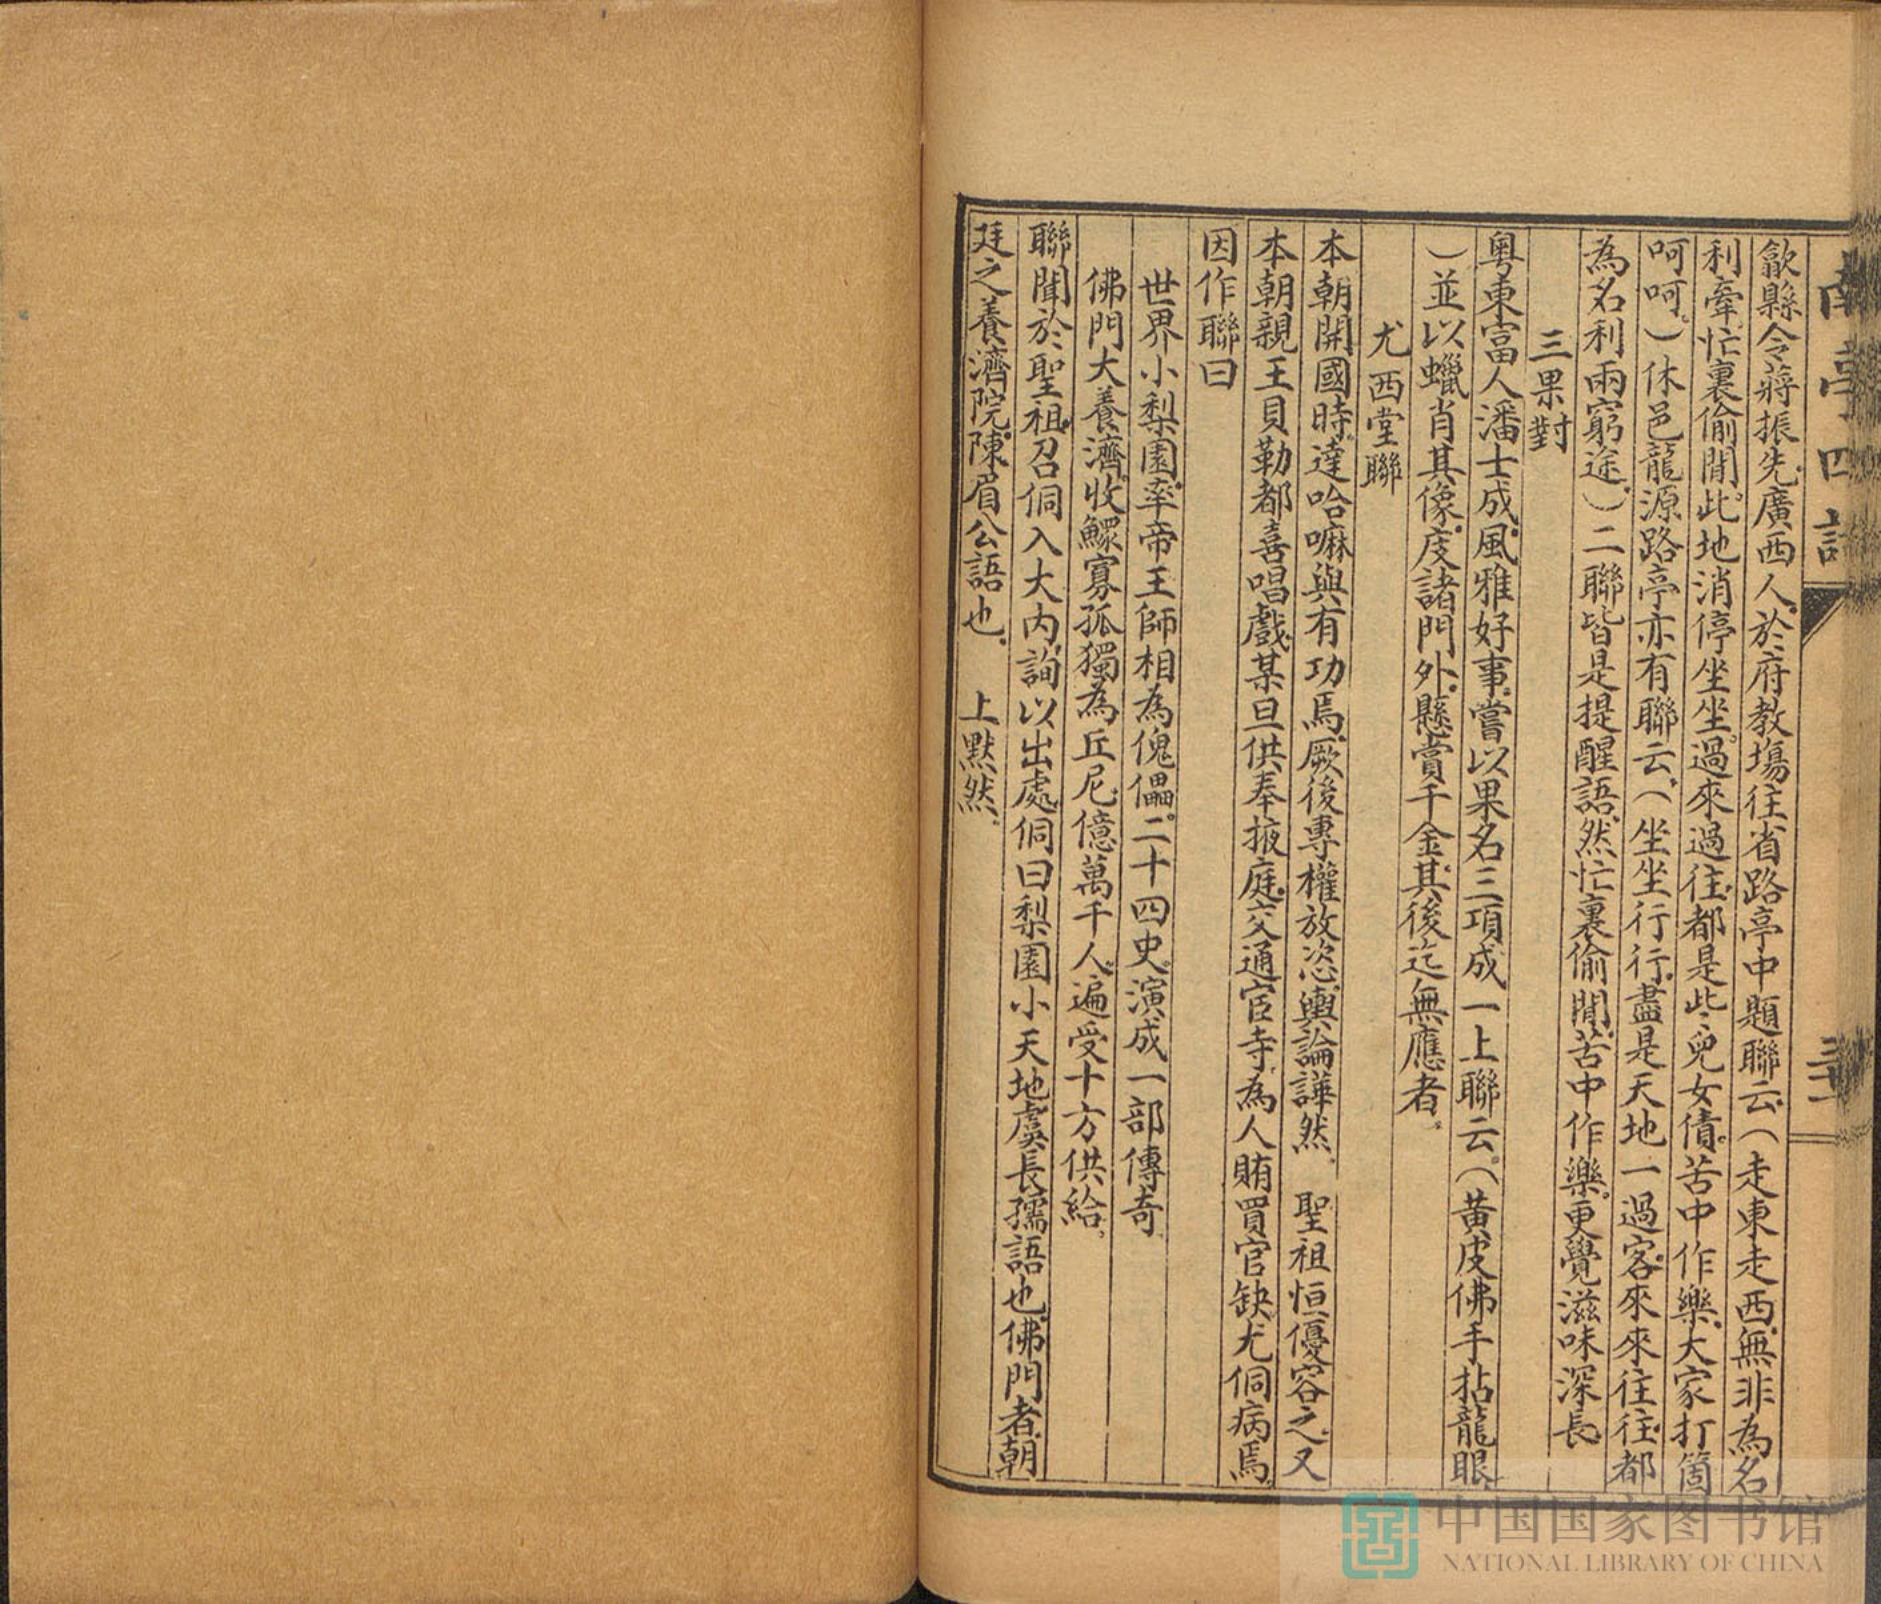 南亭四話
歙縣令蔣振先。廣西人。於府教場往省路亭中題聯云。（走東走西。無非為名
利牽。忙裏偷閒。此地消停坐坐。過來過往。都是些兒女債。苦中作樂。大家打箇
呵呵。）休邑龍源路亭亦有聯云。（坐坐行行。盡是天地一過客。來來往往。都
為名利兩窮途。）二聯皆是提醒語。然忙裏偷閒。苦中作樂。更覺滋味深長。
三果對
粵東富人潘士成。風雅好事。嘗以果名三項成一上聯云。（黃皮佛手拈龍眼
）並以蠟肖其像。庋諸門外。懸賞千金。其後迄無應者。
尤西堂聯
本朝開國時。達哈嘛與有功焉。厥後專權放恣。輿論譁然。聖祖恒優容之。又
本朝親王貝勒都喜唱戲。某旦供奉掖庭。交通宦寺。為人賄買官缺。尤侗病焉。
因作聯曰
世界小梨園。率帝王師相為傀儡。二十四史。演成一部傳奇。
佛門大養濟。收鰥寡孤獨為丘尼。億萬千人。遍受十方供給。
聯聞於聖祖。召侗入大內。詢以出處。侗曰。梨園小天地。虞長孺語也。佛門者。朝
廷之養濟院。陳眉公語也。上默然。
中国国家图书馆
NATIONAL LIBRARY OF CHINA